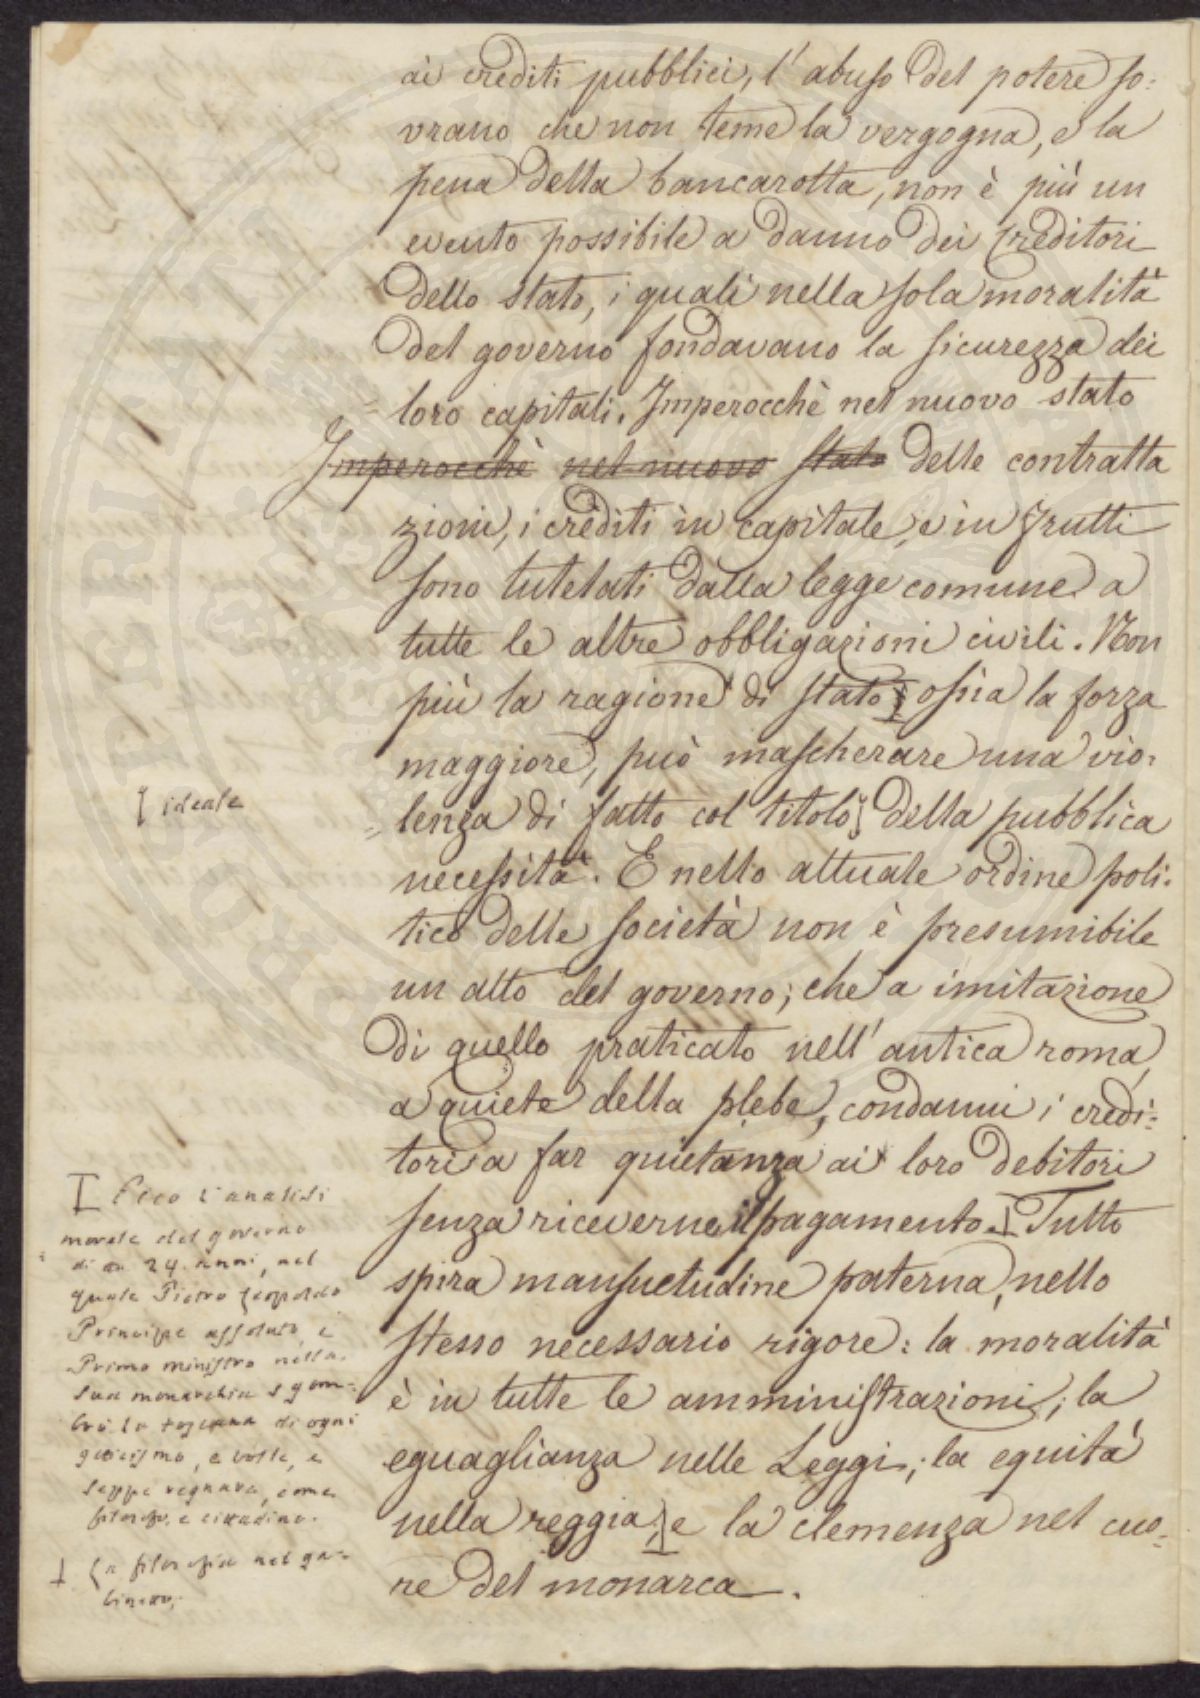 ai crediti pubblici, l'abuso del potere so-
vrano che non teme la vergogna, e la
pena della bancarotta, non è più un
evento possibile a danno dei Creditori
dello stato, i quali nella sola moralità
del governo fondavano la sicurezza dei
loro capitali. Imperocchè nel nuovo stato
Imperocchè nel nuovo stato delle contratta
zioni, i crediti in capitale, e in frutti
sono tutelati dalla legge comune a
tutte le altre obbligazioni civili. Non
più la ragione di stato, ossia la forza
maggiore, può mascherare una vio-
lenza di fatto col titolo della pubblica
necessità. E nello attuale ordine poli-
tico delle società non è presumibile
un atto del governo; che a imitazione
di quello praticato nell'antica roma,
a quiete della plebe, condanni i credi-
tori a far quietanza ai loro debitori
senza riceverne il pagamento. Tutto
spira mansuetudine paterna, nello
stesso necessario rigore: la moralità
è in tutte le amministrazioni; la
eguaglianza nelle Leggi; la equità
nella reggia; e la clemenza nel cuo-
re del monarca.
ideale
Ecco l'analisi
morale del governo
di 24. anni, nel
quale Pietro Leopoldo
Principe assoluto, e
Primo ministro nella
sua monarchia sgom-
brò la toscana di ogni
e volle, e
seppe regnare, come
filosofo, e cittadino.
La filosofia nel ga-
binetto;